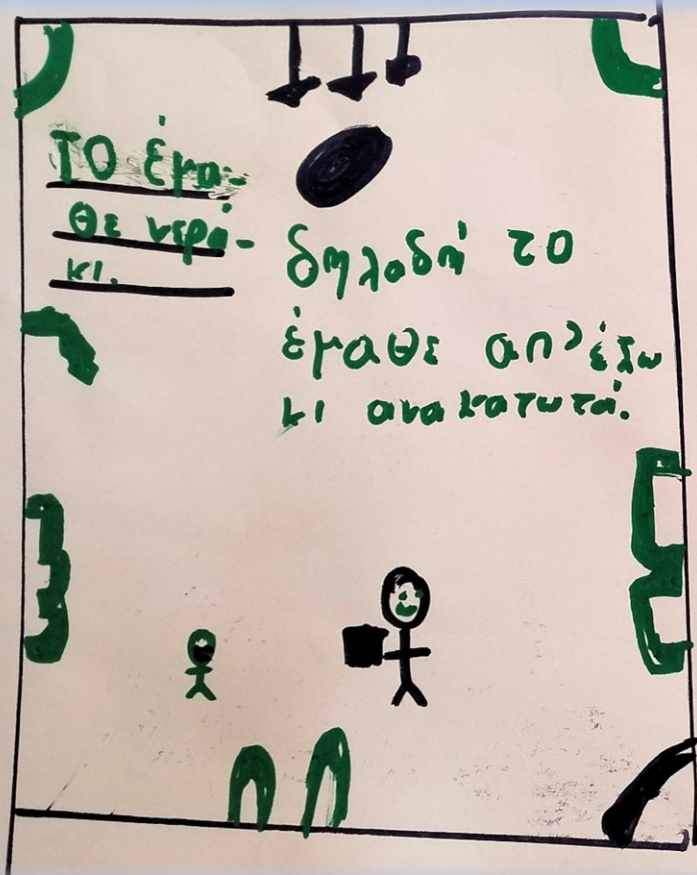 Το έμα-
θε νερά-
κι.
δηλαδή το
έμαθε απ' έξω
κι ανακατωτά.